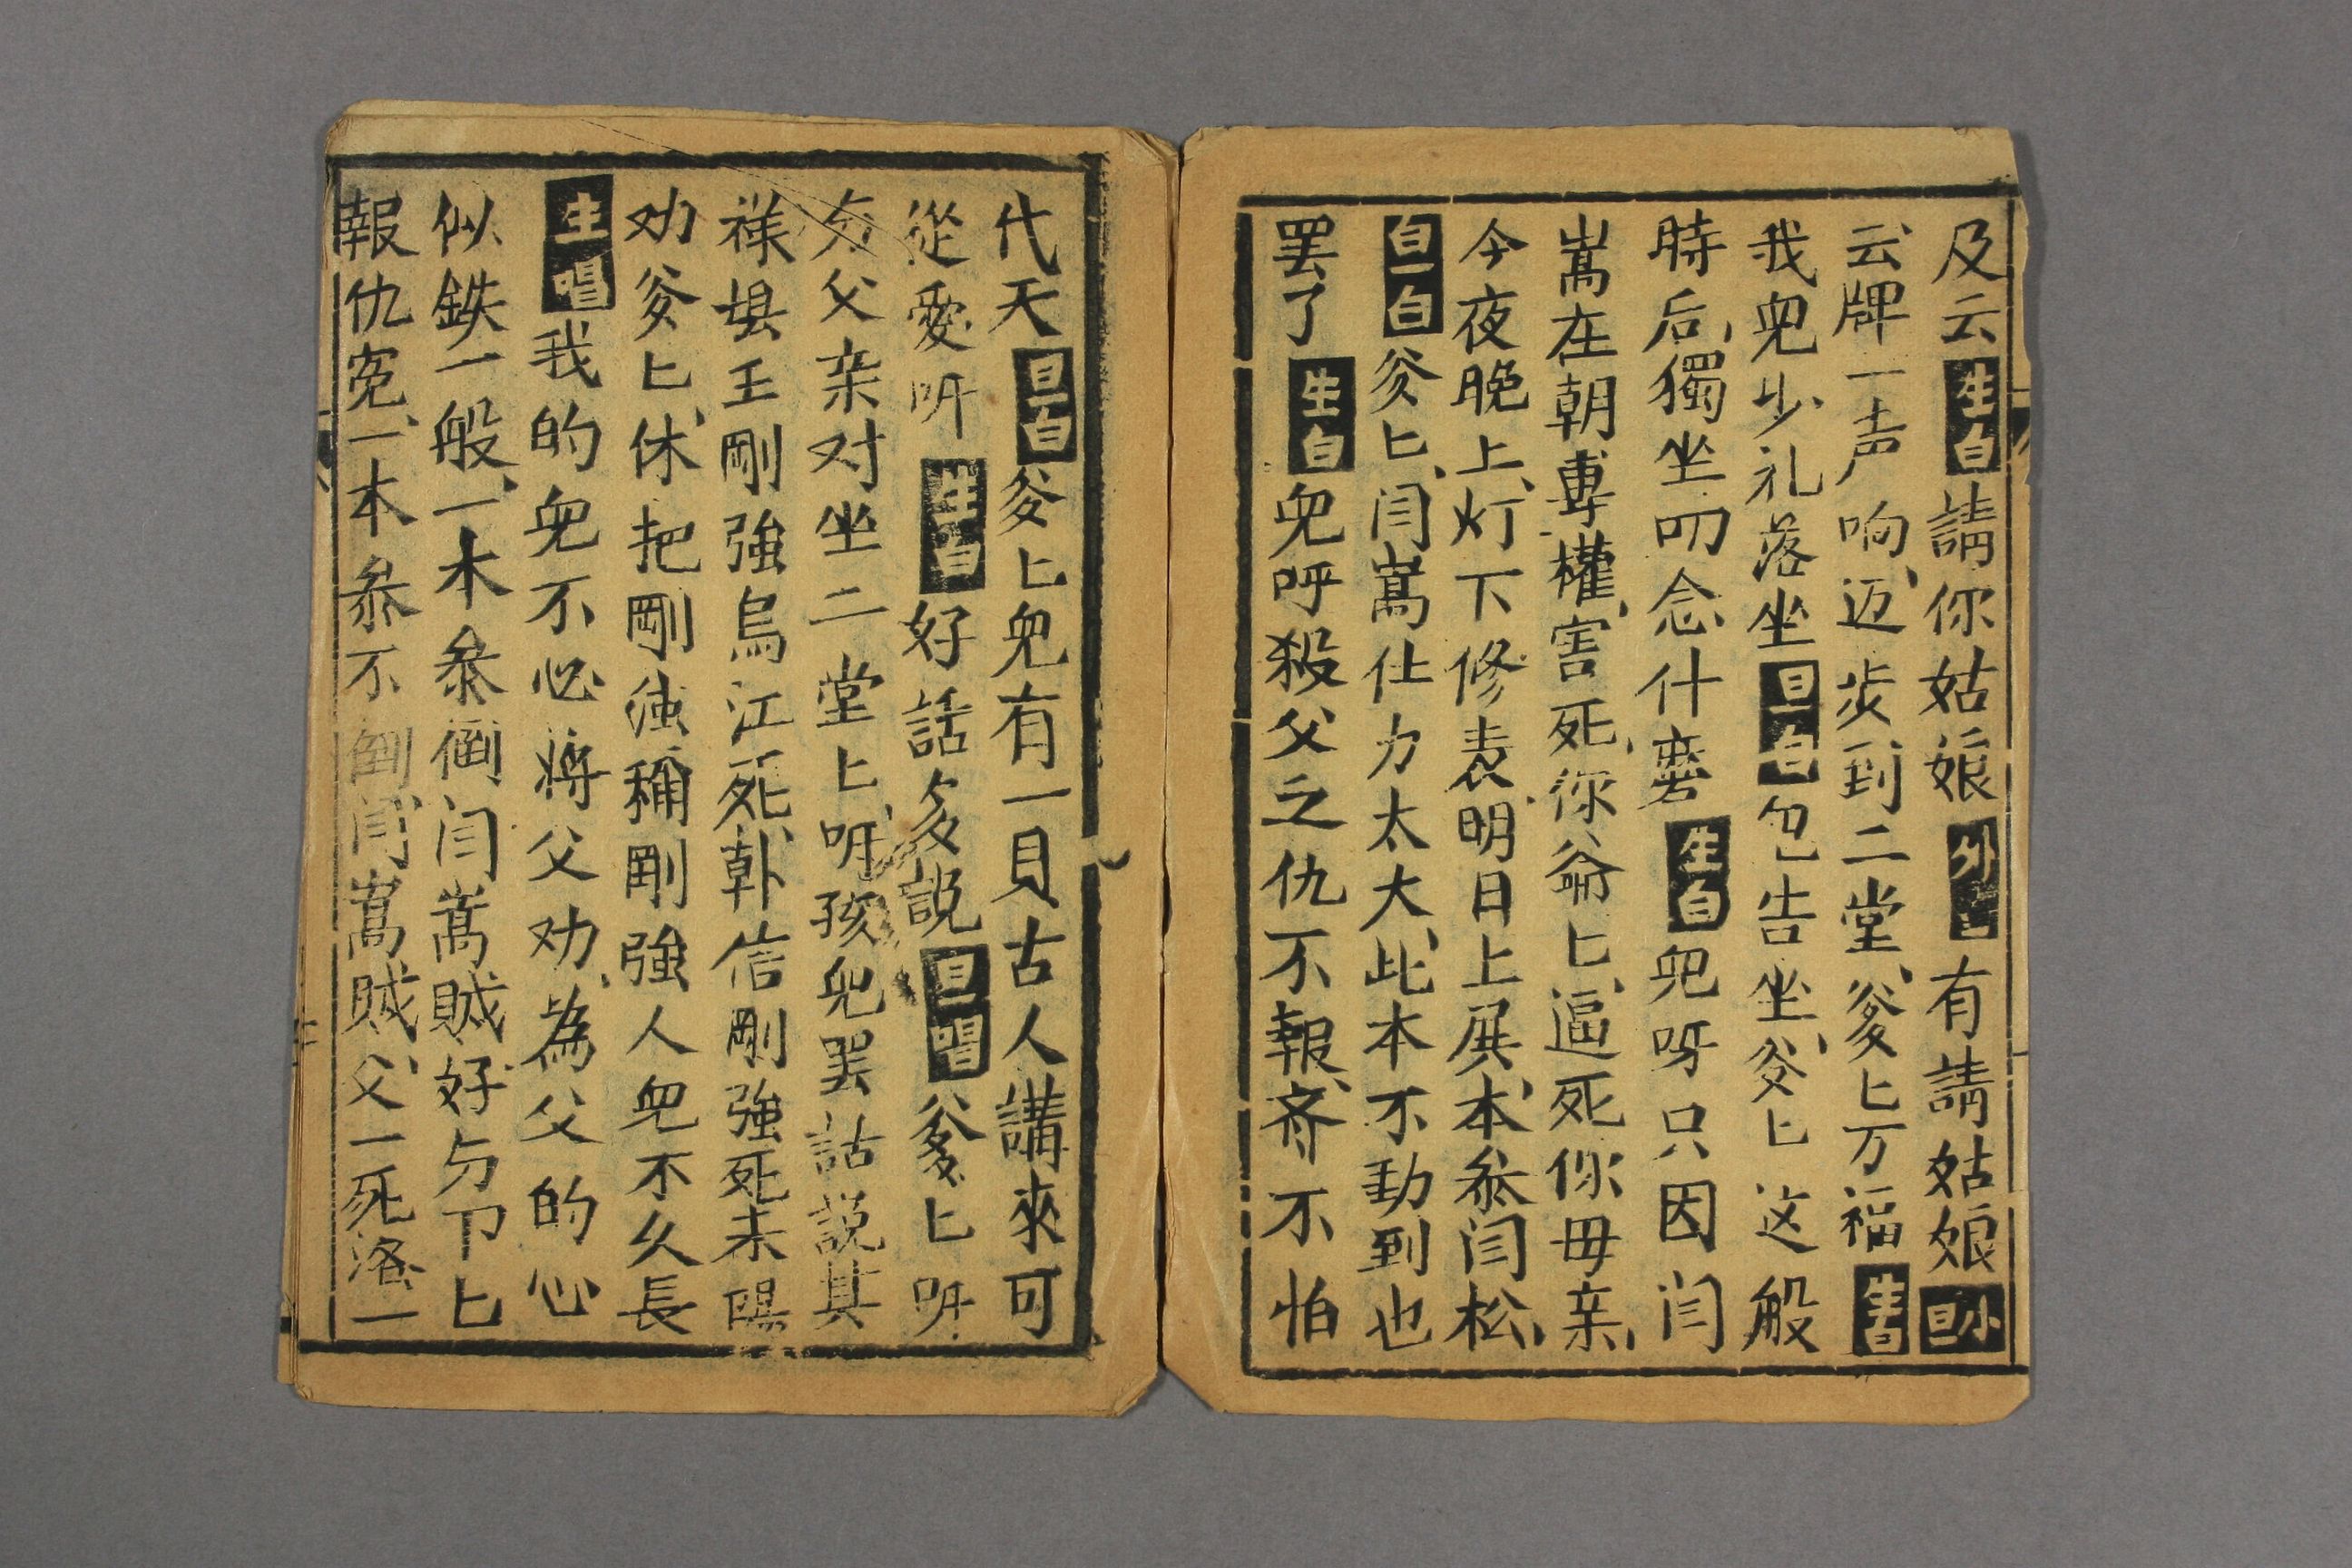 及云生白請你姑娘外白有請姑娘小旦
云牌一声响迈步到二堂爹匕万福生白
我兒少礼落坐旦白包告坐爹匕这般
時后獨坐叨念什麽生白兒呀只因闫
嵩在朝專權害死你爺匕逼死你母亲
今夜晚上灯下修表明日上殿本叅闫松
旦白爹匕闫嵩仕力太大此本不動到也
罢了生白兒呼殺父之仇不報齐不怕
代天旦白爹匕兒有一貝古人講來可
從爱呀生白好話多説旦唱爹匕呀
勿父亲对坐二堂上呀孩兒罢詁説其
祥垻王剛強烏江死韩信剛強死未
劝爹匕休把剛強稱剛強人兒不久長
生唱我的兒不必将父劝為父的心
似鉄一般一本叅倒闫嵩賊好勿卩匕
報仇冤一本叅不倒闫嵩賊父一死洛一